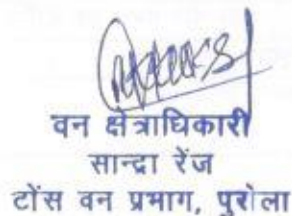 वन क्षेत्राधिकारी
सान्द्रा रेंज
टोंस वन प्रभाग, पुरोला